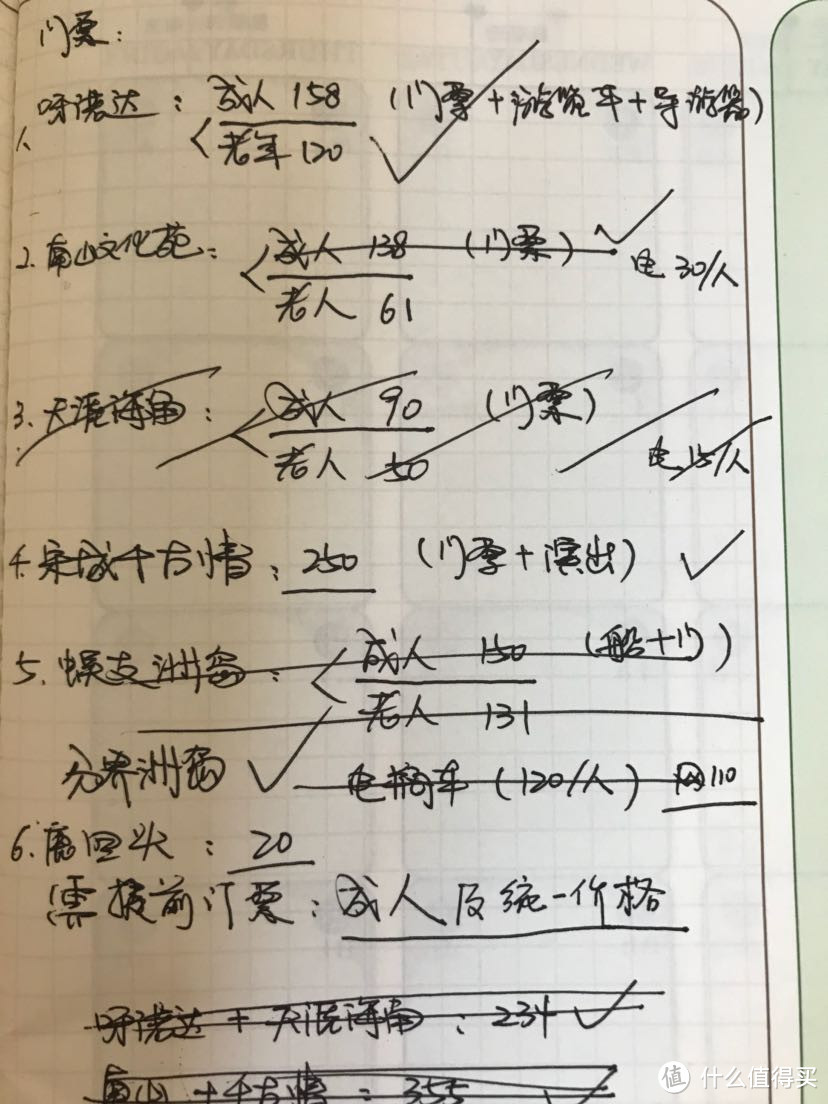 门票：
1、呀诺达：成人 158 （门票+游览车+导游器）
老年 120
2. 南山文化苑：成人 138 （门票） 电 30/人
老人 61
3. 天涯海角：成人 90 （门票）
老人 50 电 15/人
4. 宋城千古情：250 （门票+演出）
5. 蜈支洲岛：成人 150 （船+门）
老人 131
分界洲岛 电瓶车（120/人） 网110
6. 鹿回头：20
需提前订票：成人及统一价格
呀诺达+天涯海角：234
南山+千古情=355
值 什么值得买